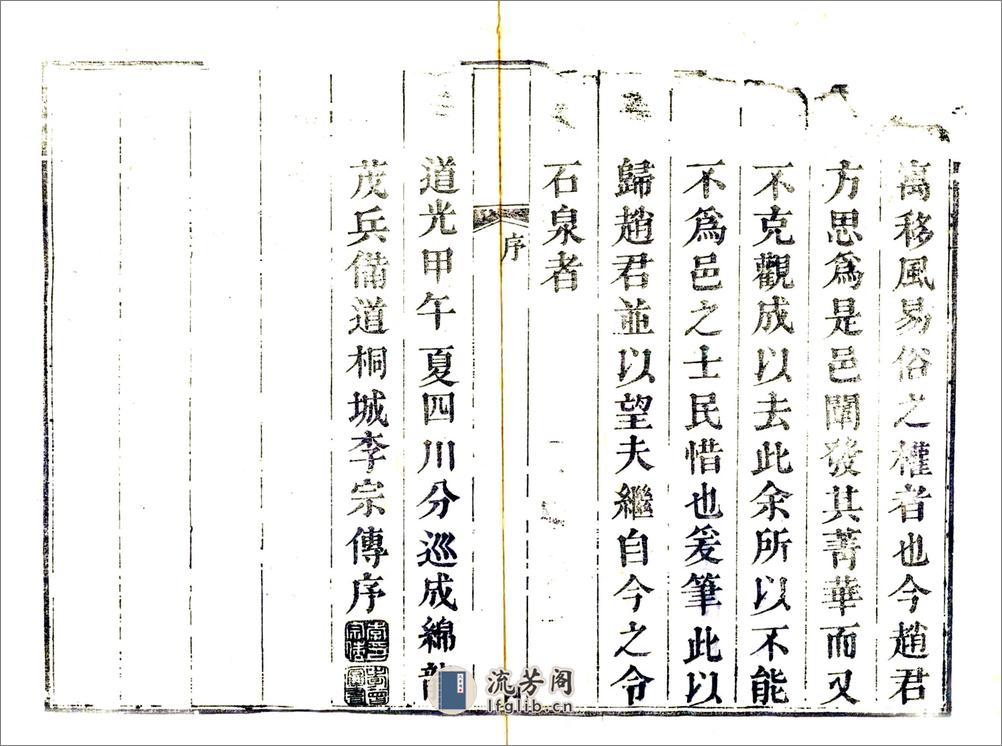 寓移風易俗之權者也今趙君
方思爲是邑闡發其菁華而又
不克觀成以去此余所以不能
不爲邑之士民惜也爰筆此以
歸趙君並以望夫繼自今之令
石泉者
序
道光甲午夏四川分巡成綿龍
茂兵備道桐城李宗傳序
流芳阁
lfglib.cn